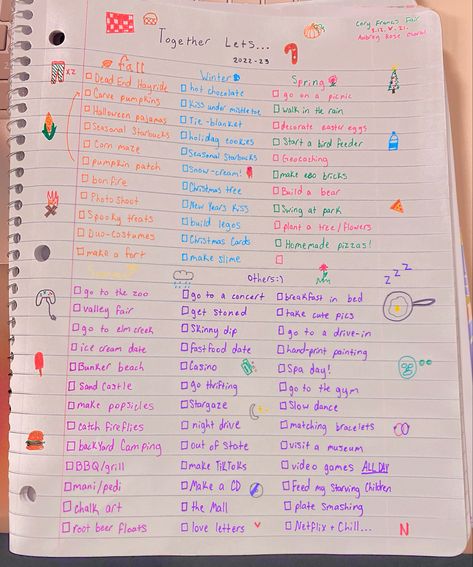 Together Lets...
2022-23
Cory Francis Fair
Aubrey Rose
x2
fall
Dead End Hayride
Carve pumpkins
Halloween pajamas
Seasonal Starbucks
Corn maze
pumpkin patch
bonfire
Photo Shoot
Spooky treats
Duo-costumes
make a fort
Winter
hot chocolate
Kiss under mistletoe
Tie-blanket
holiday cookies
Seasonal Starbucks
Snow-cream!
Christmas tree
New Years Kiss
build legos
Christmas Cards
make slime
Spring
go on a picnic
walk in the rain
decorate easter eggs
Start a bird feeder
Geocaching
make ebo bricks
Build a bear
Swing at park
plant a tree/flowers
Homemade pizzas!
Summer
go to the zoo
valley fair
go to elm creek
ice cream date
Bunker beach
Sand castle
make popsicles
catch fireflies
backyard Camping
BBQ/grill
mani/pedi
chalk art
root beer floats
Others:)
go to a concert
get stoned
Skinny dip
fastfood date
Casino
go thrifting
Stargaze
night drive
out of State
make TikToks
Make a CD
the Mall
love letters
breakfast in bed
take cute pics
go to a drive-in
hand-print painting
Spa day!
go to the gym
Slow dance
matching bracelets
visit a museum
video games ALL DAY
Feed my Starving Children
plate smashing
Netflix + Chill...
z z z
N